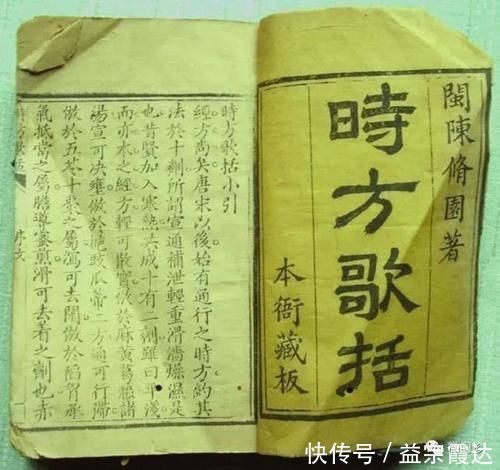 閩陳脩園著
時方歌括
本衙藏板
時方歌括小引
經方尚矣唐宋以後始有通行之時方約其
法於十劑所謂宣通補泄輕重滑濇燥濕是
也昔賢加入寒熱共成十有二劑雖曰平淺
而亦本之經方輕可散實倣於麻黃葛根諸
湯宣可決壅倣於梔豉瓜蒂二方通可行滯
倣於五苓十棗之屬瀉可去閉倣於陷胸承
氣抵當之屬膽導蜜煎滑可去著之劑也赤
時方歌括
快传号／益京霞达